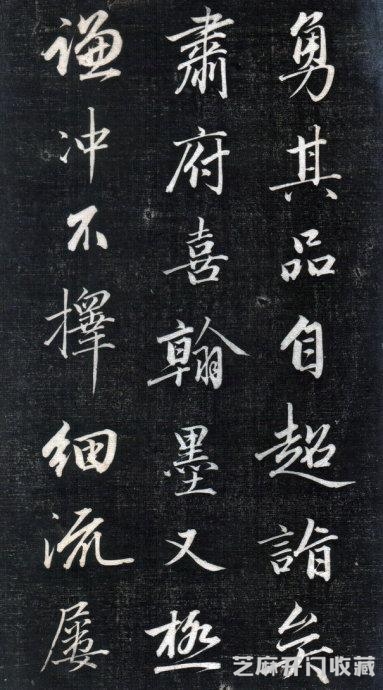 勇其品自超詣矣
肅府喜翰墨又極
謙冲不擇細流屢
芝麻开门收藏